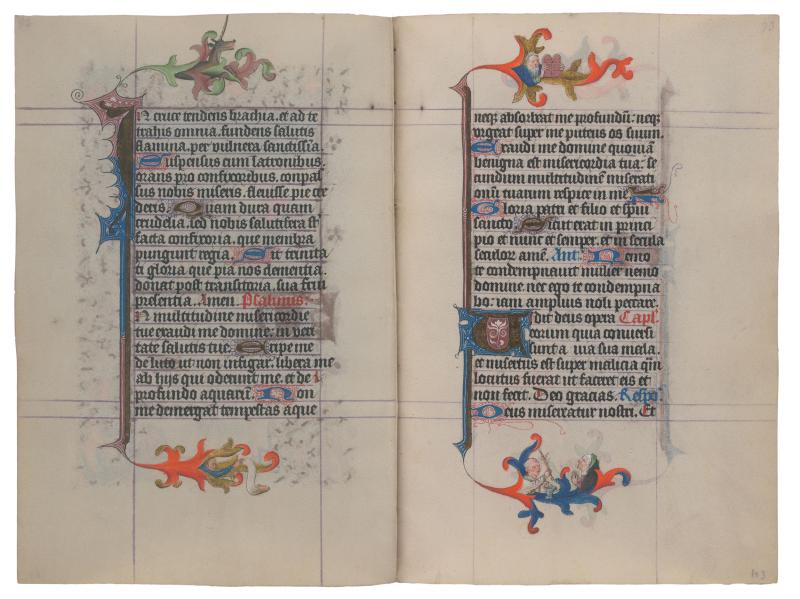 In cruce tendens brachia. et ad te
trahis omnia. fundens salutis
flamina. per vulnera sanctissīa.
Suspensus cum latronibus.
orans pro confixoribus. conpas
sus nobis miseris. fleuisse pie cre
deris. Quam dura quam
crudelia. sed nobis salutifera st̄
facta confixoria. que membra
pungunt regia. Sit trinita
ti gloria que pia nos clementia.
donat post transitoria. sua frui
presentia. Amen. Psalmus.
In multitudine misericordie
tue exaudi me domine: in veri
tate salutis tue. Eripe me
de luto ut non infigar: libera me
ab hijs qui oderunt me. et de
profundo aquarū. Non
me demergat tempestas aque
neqʒ absorbeat me profundū: neqʒ
vrgeat super me puteus os suum.
Exaudi me domine quoniā
benigna est misericordia tua: se
cundum multitudinē miserati
onū tuarum respice in me
Gloria patri et filio et spūi
sancto Sicut erat in princi
pio et nunc et semper. et in secula
seculoꝝ amē. Ant. Nemo
te condempnauit mulier nemo
domine. nec ego te condempna
bo: iam amplius noli peccare.
Uidit deus opera Capl̄.
eorum quia conuersi
sunt a uia sua mala.
et misertus est super malicia qm̄
locutus fuerat ut faceret eis et
non fecit. Deo gracias. Respō.
Deus misereatur nostri. Et
103